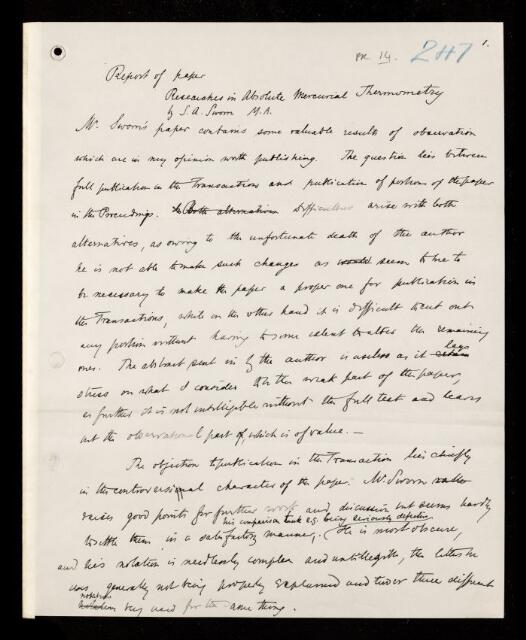 RR 14. 247 1.
Report of paper
Researches in Absolute Mercurial Thermometry
by S. A. Sworn M.A.
Mr. Sworn's paper contains some valuable results of observation
which are in my opinion worth publishing. The question lies between
full publication in the Transactions and publication of portions of the paper
in the Proceedings. Both alternatives Difficulties arise with both
alternatives, as owing to the unfortunate death of the author
he is not able to make such changes as would seem to me to
be necessary to make the paper a proper one for publication in
the Transactions, while on the other hand it is difficult to cut out
any portion without having to some extent to alter the remaining
ones. The abstract sent in by the author is useless as it lays
stress on what I consider to be the weak part of the paper,
as further it is not intelligible without the full text and leaves
out the observational part of which is of value. —
The objection to publication in the Transactions lies chiefly
in the controversial character of the paper. Mr. Sworn rather
raises good points for further work and discussion but seems hardly
his comparison tube e.g. being seriously defective
to settle them in a satisfactory manner. He is most obscure,
and his notation is needlessly complex and untelligible, the letters he
uses generally not being properly explained and two or three different
notations
being used for the same thing.